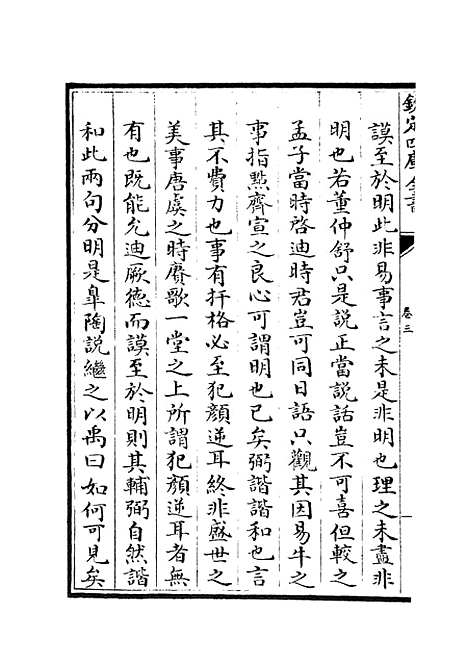 欽定四庫全書
卷三
謨至於明此非易事言之未是非明也理之未盡非
明也若董仲舒只是說正當說話豈不可喜但較之
孟子當時啓迪時君豈可同日語只觀其因易牛之
事指㸃齊宣之良心可謂明也已矣弼諧諧和也言
其不費力也事有扞格必至犯顏逆耳終非盛世之
美事唐虞之時賡歌一堂之上所謂犯顏逆耳者無
有也既能允迪厥德而謨至於明則其輔弼自然諧
和此兩句分明是臯陶說繼之以禹曰如何可見矣